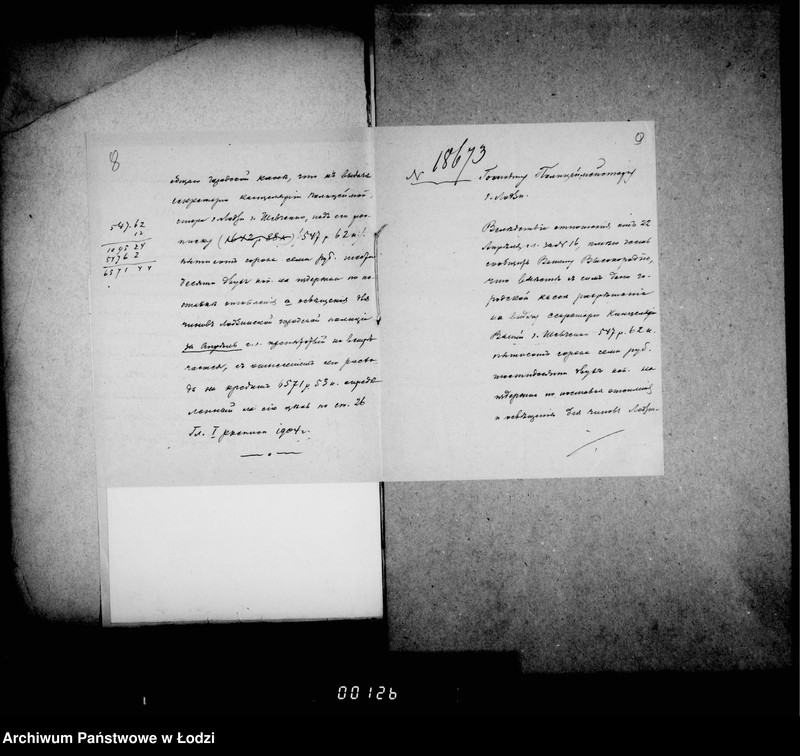 8
общаю городской кассе, что къ выдаче
секретарю канцеляріи Полицеймей-
стера г. Лодзи г. Шевченко, подъ его рос-
писку (547 р 62 к)
пятисотъ сорока семи руб. шести-
десяти двухъ коп. на издержки по по-
ставкѣ отопленія и освѣщенія для
чиновъ Лодзинской городской полиціи
за Апрѣль с.г. препятствій не встрѣ-
чается, съ отнесеніемъ сего расхо-
да на кредитъ 6571 р 53 к. опредѣ-
ленный на сію цѣль по ст. 26
Гл. I росписи 1904 г.
547.62
12
1095 24
5476 2
6571 44
9
№ 18673
Господину Полицеймейстеру
г. Лодзи.
Вслѣдствіе отношенія отъ 22
Апрѣля с.г. за № 16, имѣю честь
сообщить Вашему Высокородію,
что вмѣстѣ съ симъ дано го-
родской кассѣ разрѣшеніе
на выдачу Секретарю Канцеляріи
Вашей г. Шевченко 547 р. 62 к.
пятисотъ сорока семи руб.
шестидесяти двухъ коп. на
издержки по поставкѣ отопленія
и освѣщенія для чиновъ Лодзин-
00126
Archiwum Państwowe w Łodzi